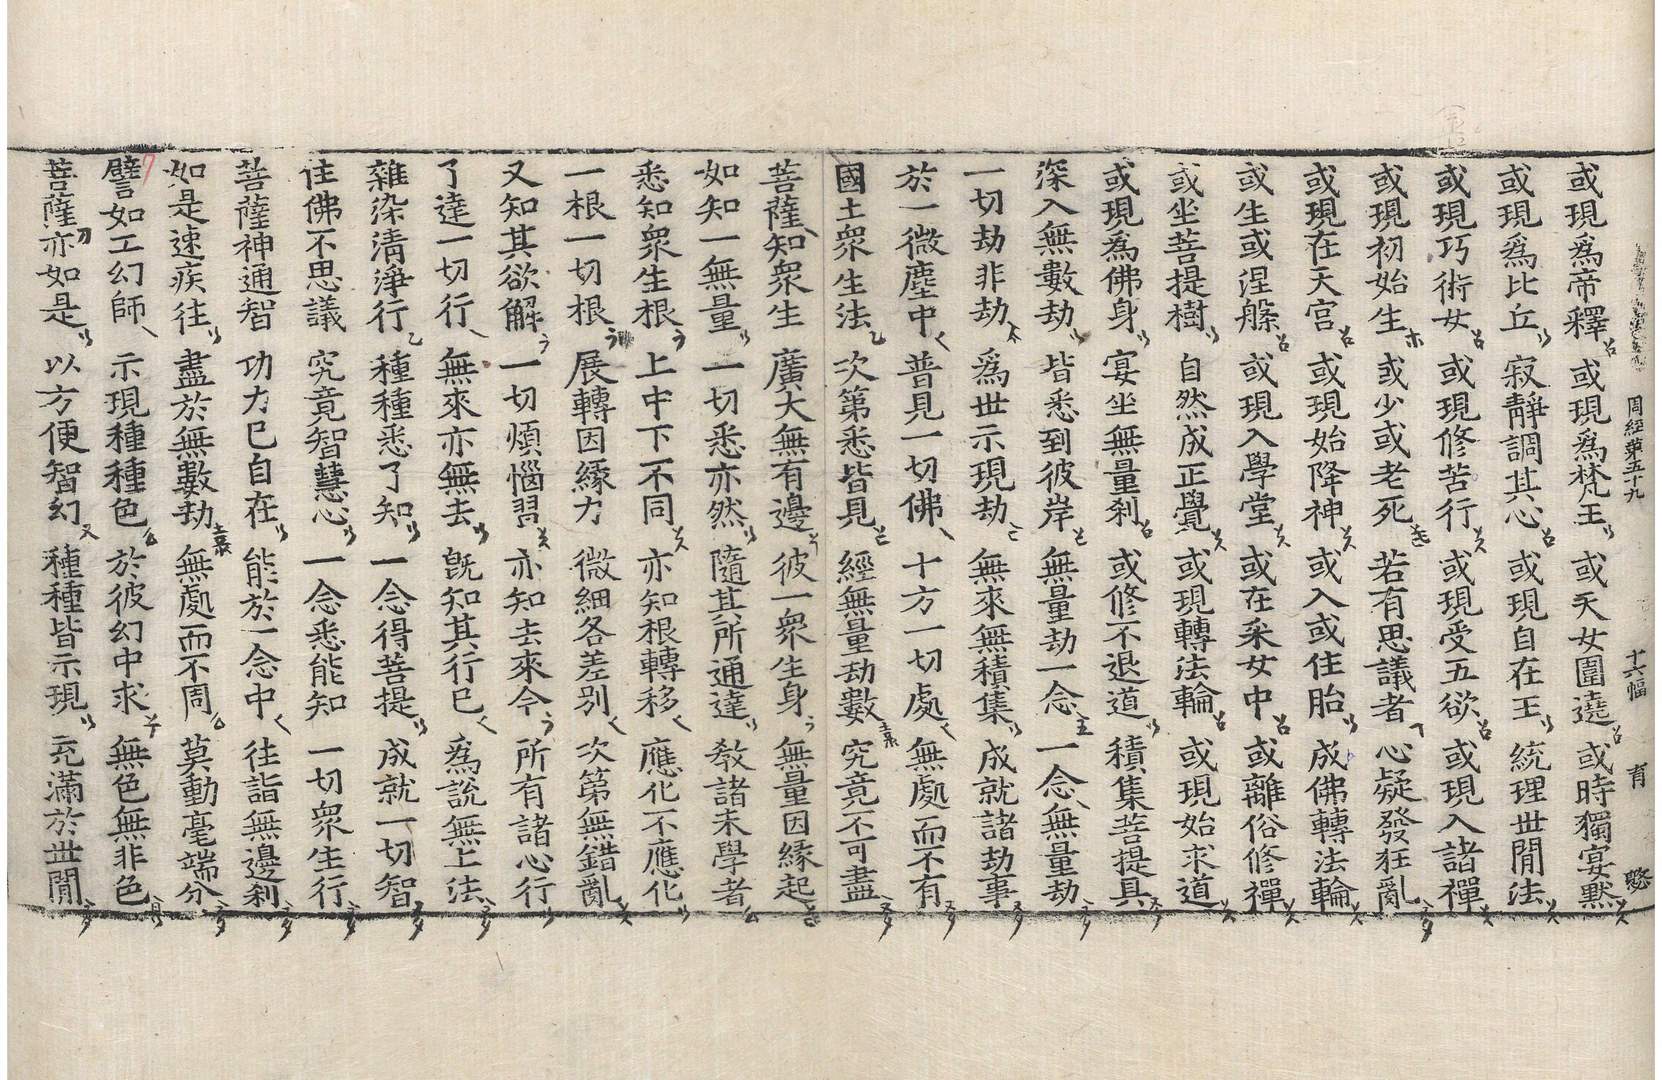 周經第五十九 十六幅 育
或現爲帝釋 或現爲梵王 或天女圍遶 或時獨宴默
或現爲比丘 寂靜調其心 或現自在王 統理世間法
或現巧術女 或現修苦行 或現受五欲 或現入諸禪
或現初始生 或少或老死 若有思議者 心疑發狂亂
或現在天宮 或現始降神 或入或住胎 成佛轉法輪
或生或涅槃 或現入學堂 或在采女中 或離俗修禪
或坐菩提樹 自然成正覺 或現轉法輪 或現始求道
或現爲佛身 宴坐無量剎 或修不退道 積集菩提具
深入無數劫 皆悉到彼岸 無量劫一念 一念無量劫
一切劫非劫 爲世示現劫 無來無積集 成就諸劫事
於一微塵中 普見一切佛 十方一切處 無處而不有
國土眾生法 次第悉皆見 經無量劫數 究竟不可盡
菩薩知眾生 廣大無有邊 彼一眾生身 無量因緣起
如知一無量 一切悉亦然 隨其所通達 教諸未學者
悉知眾生根 上中下不同 亦知根轉移 應化不應化
一根一切根 展轉因緣力 微細各差別 次第無錯亂
又知其欲解 一切煩惱習 亦知去來今 所有諸心行
了達一切行 無來亦無去 既知其行已 爲說無上法
雜染清淨行 種種悉了知 一念得菩提 成就一切智
住佛不思議 究竟智慧心 一念悉能知 一切眾生行
菩薩神通智 功力已自在 能於一念中 往詣無邊剎
如是速疾往 盡於無數劫 無處而不周 莫動毫端分
譬如工幻師 示現種種色 於彼幻中求 無色無非色
菩薩亦如是 以方便智幻 種種皆示現 充滿於世間